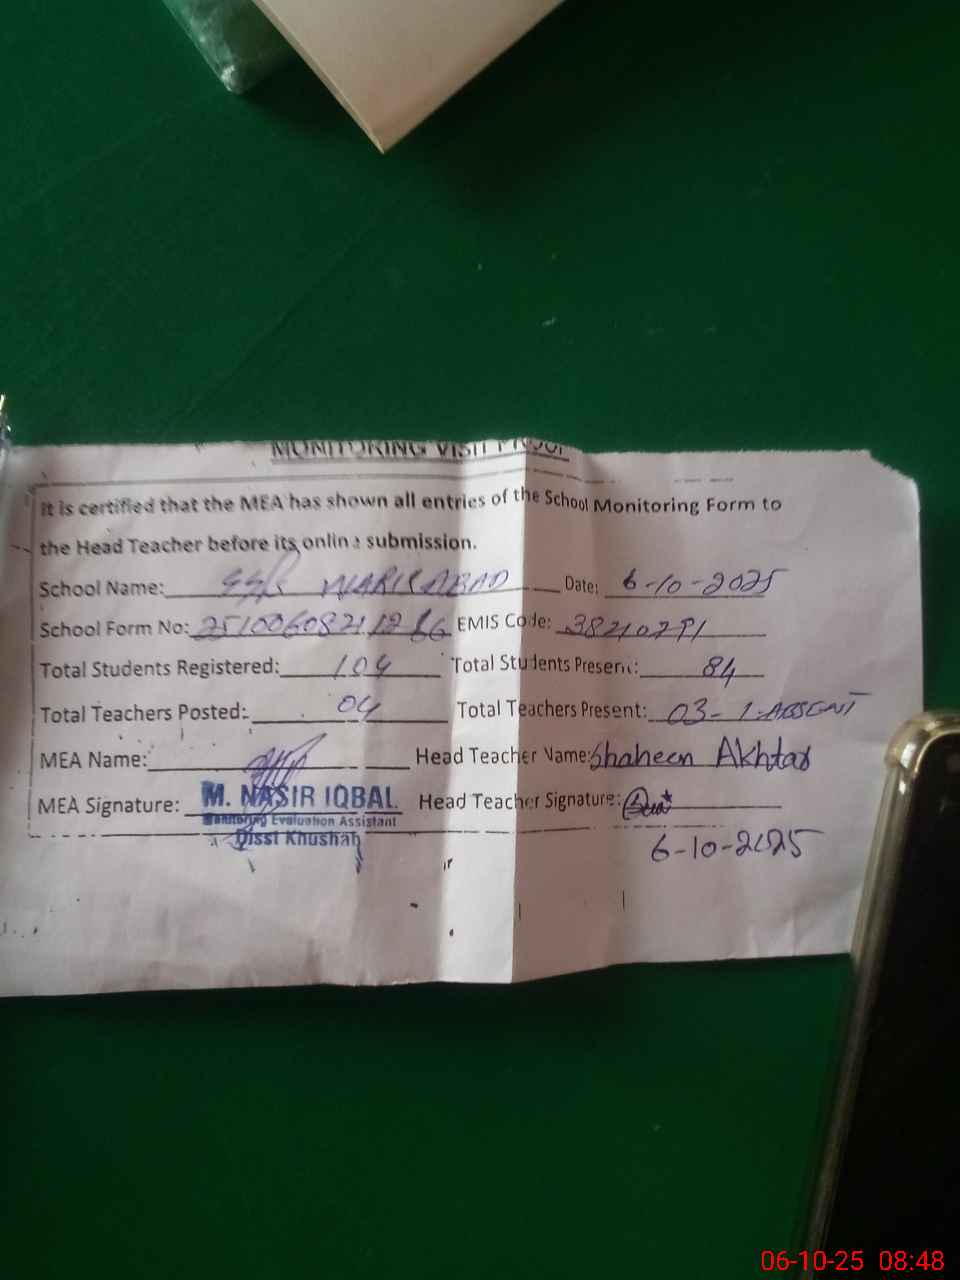 MONITORING VISIT PROOF
It is certified that the MEA has shown all entries of the School Monitoring Form to
the Head Teacher before its online submission.
School Name: WARISABAD Date: 6-10-2025
School Form No: EMIS Code: 38210291
Total Students Registered: 104 Total Students Present: 84
Total Teachers Posted: 04 Total Teachers Present: 03-1-ABSENT
MEA Name: Head Teacher Name: Shaheen Akhtar
MEA Signature: M. NASIR IQBAL Head Teacher Signature:
Monitoring Evaluation Assistant
Disst Khushab
6-10-2025
06-10-25 08:48